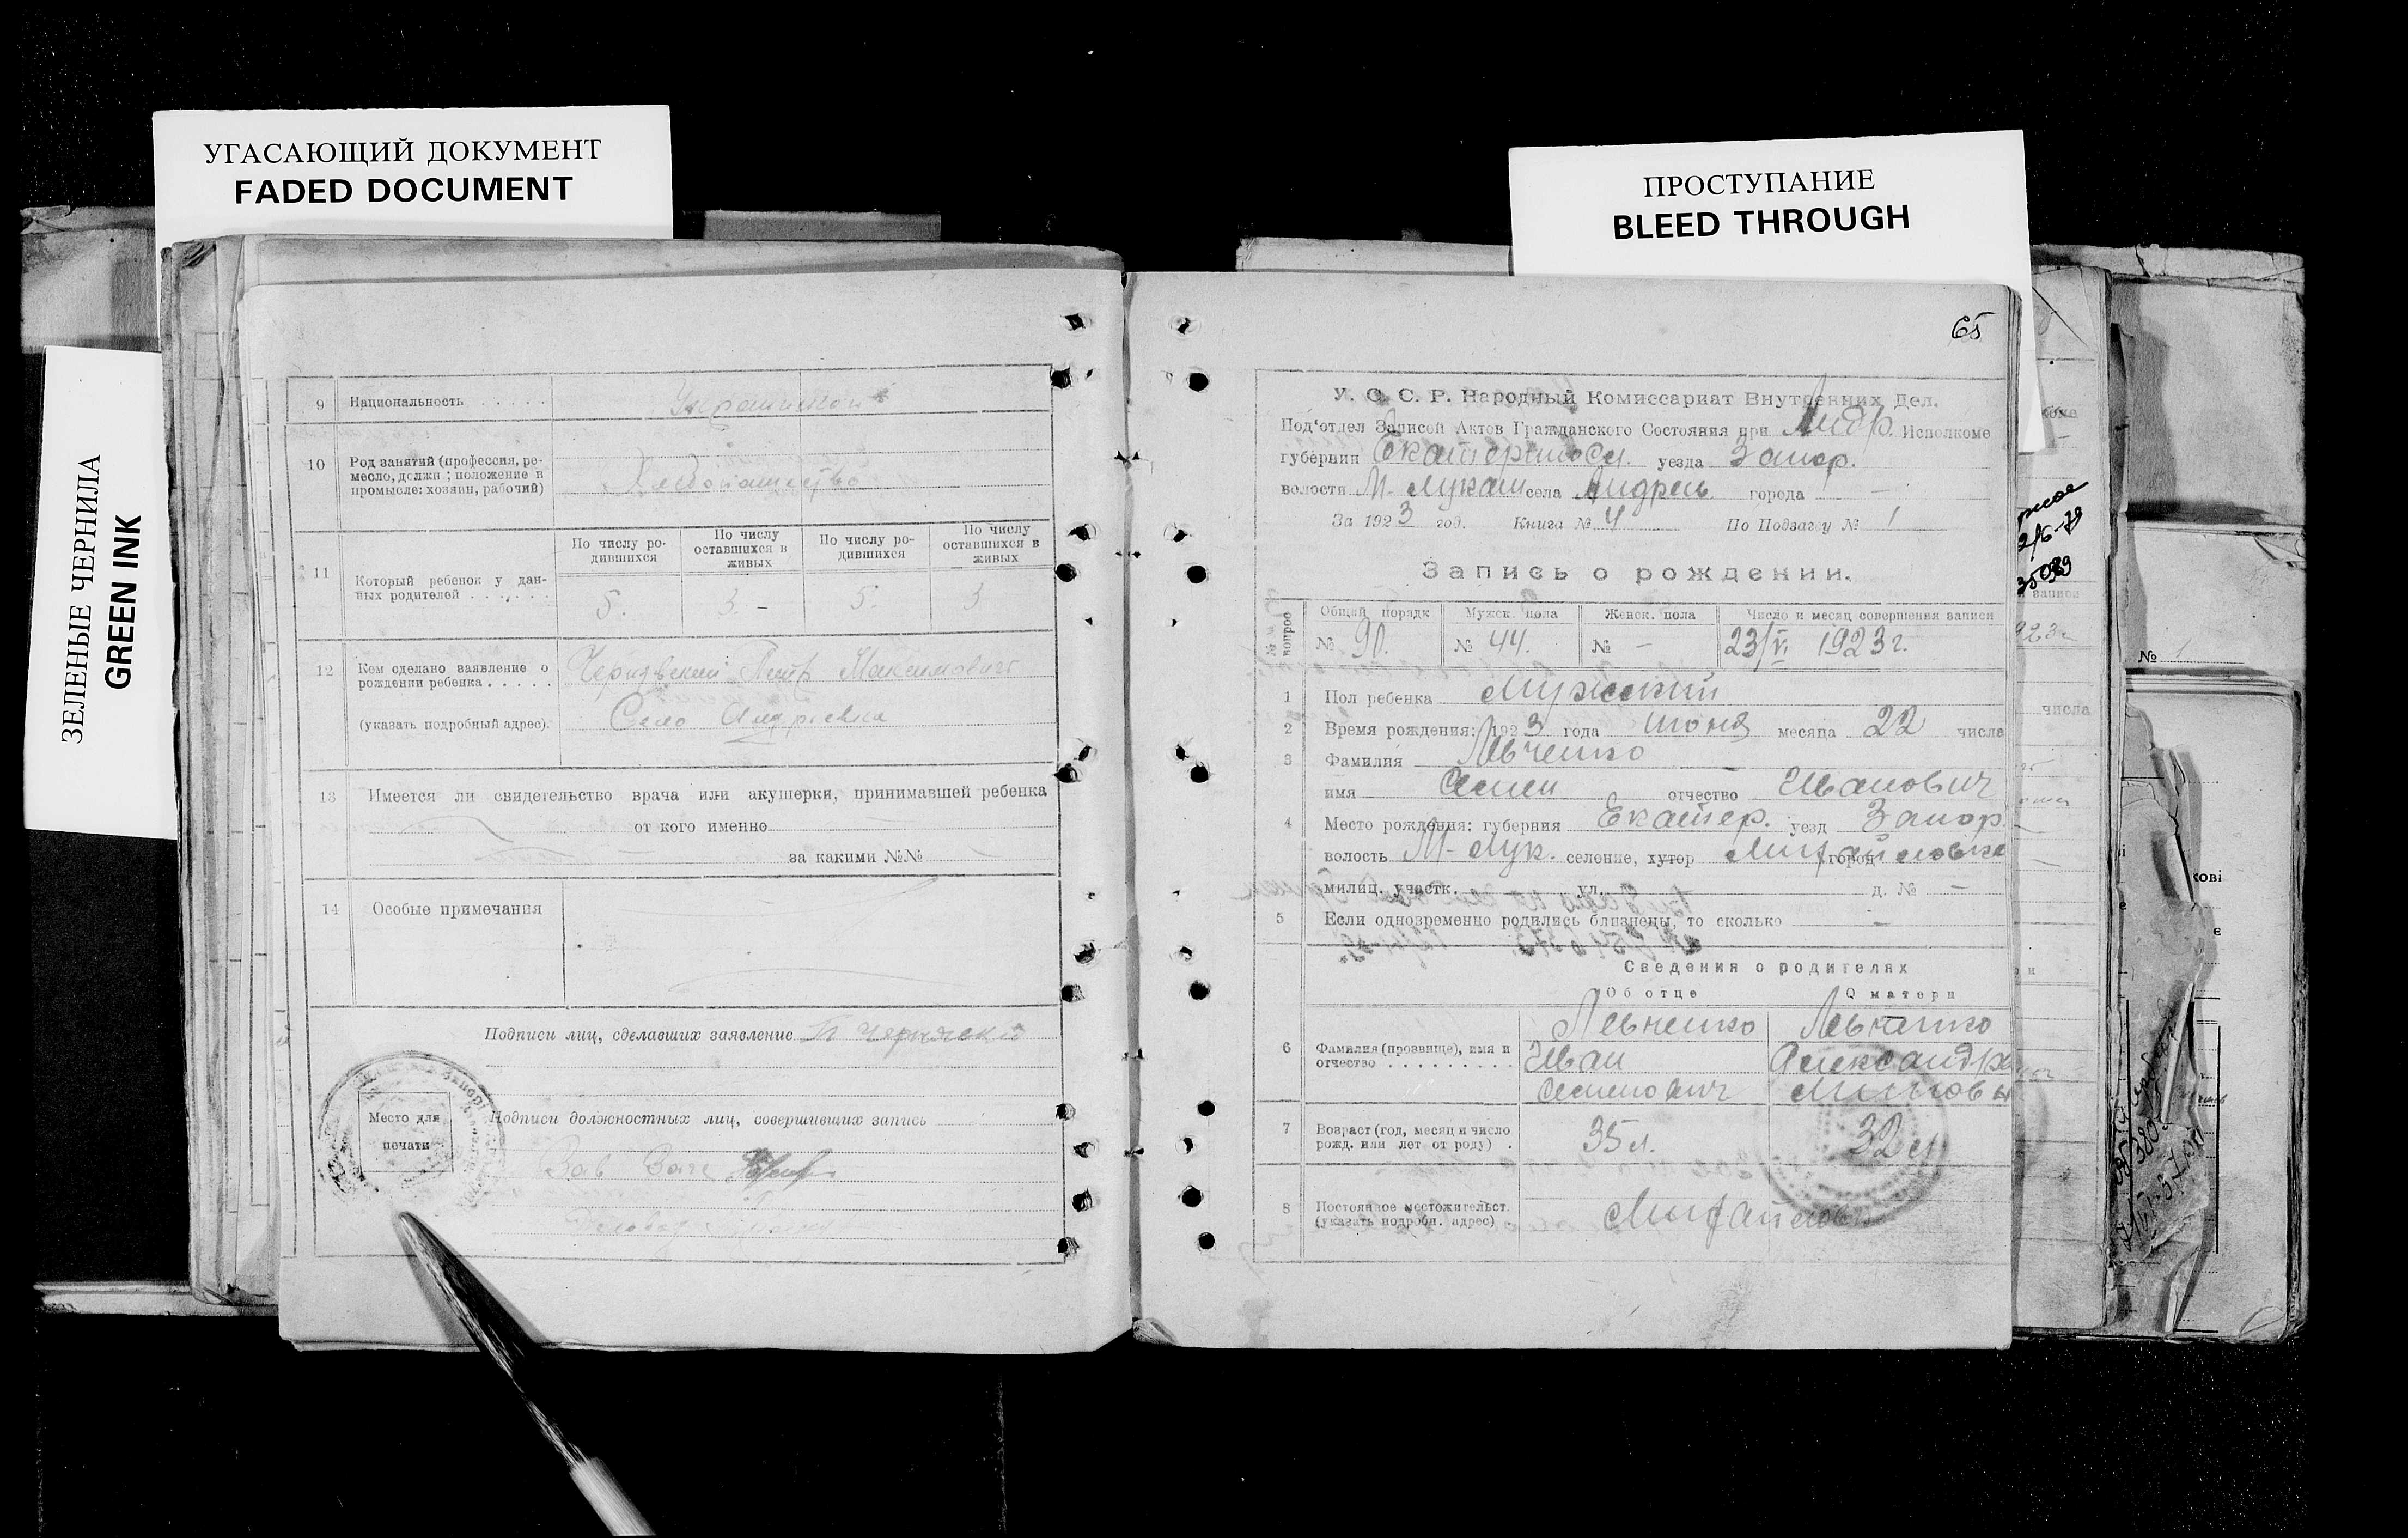 УГАСАЮЩИЙ ДОКУМЕНТ
FADED DOCUMENT
ПРОСТУПАНИЕ
BLEED THROUGH
ЗЕЛЕНЫЕ ЧЕРНИЛА
GREEN INK
9 Национальность
10 Род занятий (профессия, ре-
месло, должн.; положение в
промысле: хозяин, рабочий)
Хлебопашество
11 Который ребенок у дан-
ных родителей
По числу ро-
дившихся
По числу
оставшихся в
живых
По числу ро-
дившихся
По числу
оставшихся в
живых
5. 3 - 5. 3
12 Кем сделано заявление о
рождении ребенка
(указать подробный адрес).
Петр Максимович
Село Андреевка
13 Имеется ли свидетельство врача или акушерки, принимавшей ребенка
от кого именно
за какими №№
14 Особые примечания
Подписи лиц, сделавших заявление
Место для
печати
Подписи должностных лиц, совершивших запись
65
У. С. С. Р. Народный Комиссариат Внутренних Дел.
Под'отдел Записей Актов Гражданского Состояния при Андр. Исполкоме
губернии Екатериносл. уезда Запор.
волости М. Лукаш села Андреев. города —
За 1923 год. Книга № 4 По Подзагсу № 1
Запись о рождении.
№№ вопрос
Общий порядк Мужск. пола Женск. пола Число и месяц совершения записи
№ 90. № 44. № — 23/VI 1923 г.
1 Пол ребенка Мужский
2 Время рождения: 1923 года июня месяца 22 числа
3 Фамилия Левченко
имя Семен отчество Иванович
4 Место рождения: губерния Екатер. уезд Запор.
волость М-Лук. селение, хутор Михайловка город
милиц. участк. ул. д. № —
5 Если одновременно родились близнецы, то сколько —
Сведения о родителях
Об отце О матери
6 Фамилия (прозвище), имя и
отчество
Левченко Левченко
Иван Александра
Семенович
7 Возраст (год, месяц и число
рожд. или лет от роду)
35 л. 32 л
8 Постоянное местожительст.
(указать подробн. адрес)
Михайловка
числа
№ 1